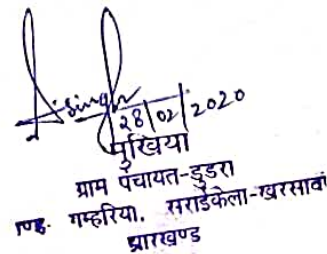 A. Singh
28/02/2020
मुखिया
ग्राम पंचायत-डुडरा
गम्हरिया, सराईकेला-खरसावां
झारखण्ड